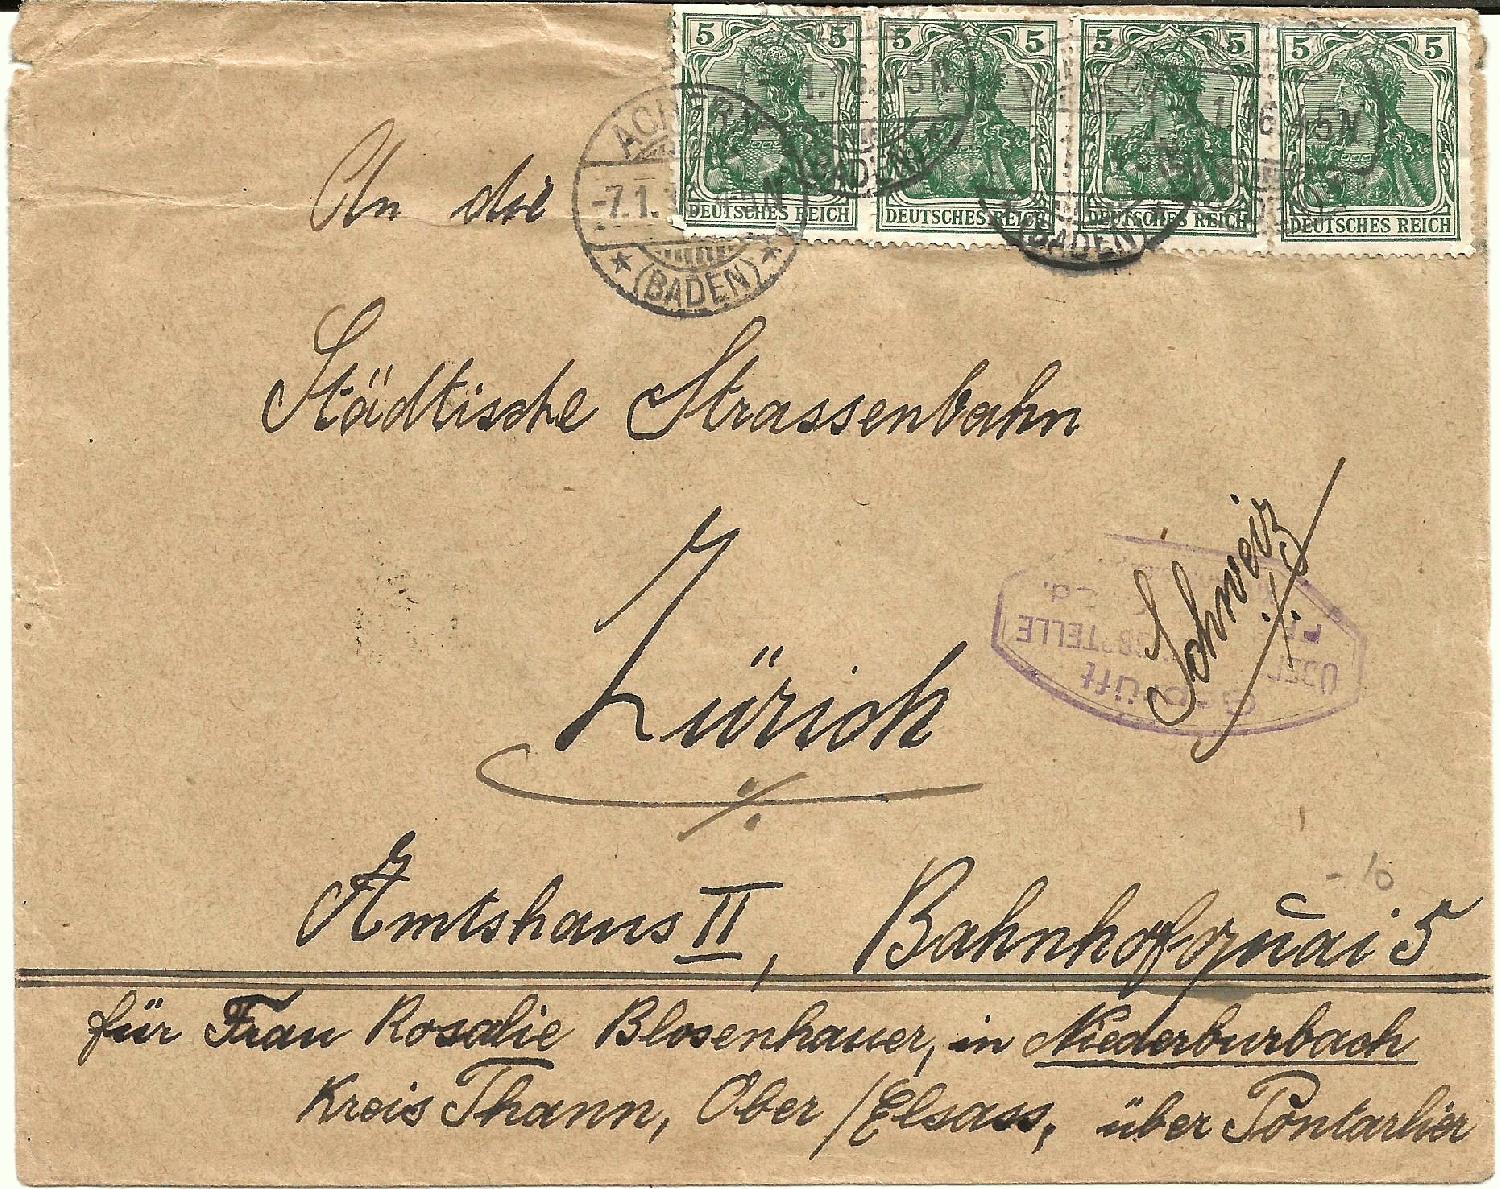 5 5 5 5 5 5 5 5
DEUTSCHES REICH DEUTSCHES REICH DEUTSCHES REICH DEUTSCHES REICH
ACHERN
-7.1.
* (BADEN) *
(BADEN)
(BADEN)
An die
Städtische Strassenbahn
Zürich
Schweiz
Geprüft
Amtshaus II, Bahnhofquai 5
für Frau Rosalie Blosenhauer, in Niederburbach
Kreis Thann, Ober/Elsass, über Pontarlier